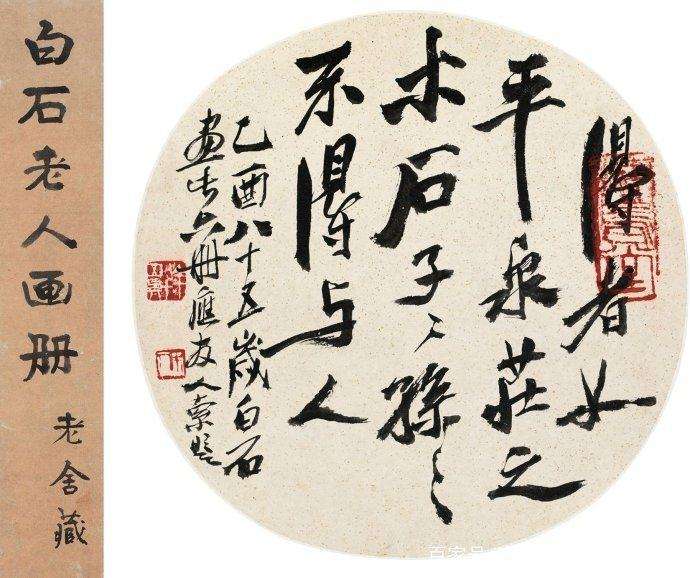 白石老人画册
老舍藏
得者如
平泉莊之
木石子〻孫〻
不得与人
乙酉八十五歲白石
畫此六册應友人索題